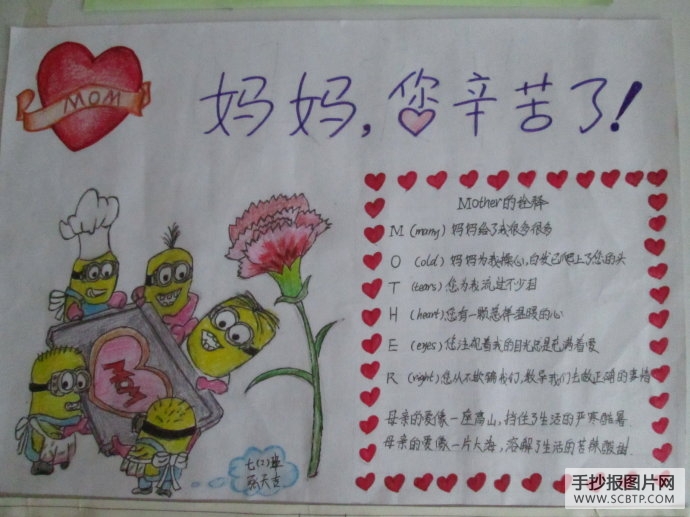 MOM
妈妈,您辛苦了!
Mother的诠释
M (many) 妈妈给了我很多很多
O (old) 妈妈为我操心,白发已爬上了您的头
T (tears) 您为我流过不少泪
H (heart) 您有一颗慈祥温暖的心
E (eyes) 您注视着我的目光总是充满着爱
R (right) 您从不欺骗我们,教导我们去做正确的事情
母亲的爱像一座高山,挡住了生活的严寒酷暑.
母亲的爱像一片大海,溶解了生活的苦辣酸甜.
MOM
七(2)班
天吉
手抄报图片网
WWW.SCBTP.COM